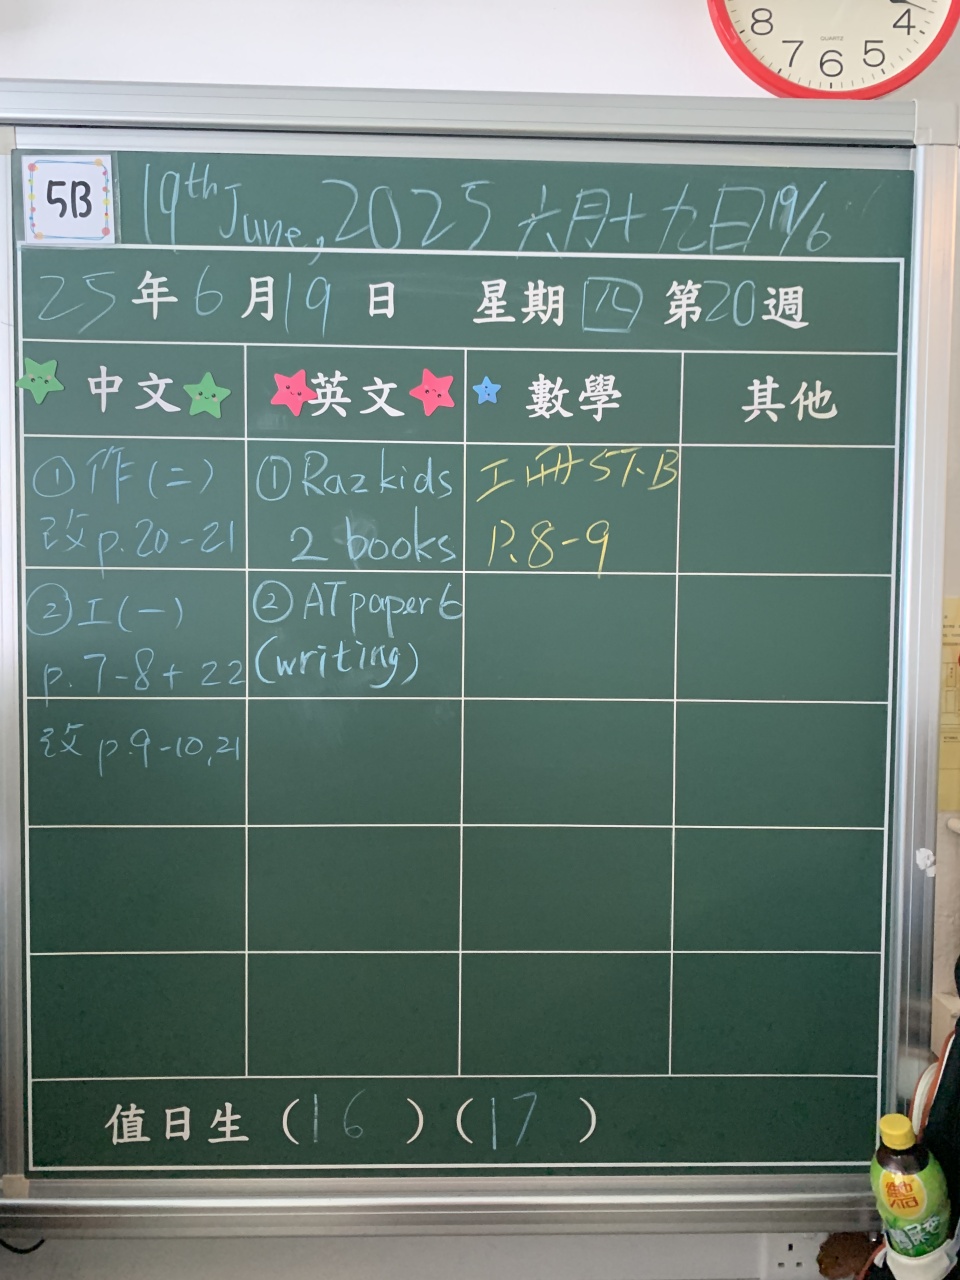 8 7 6 5 4
QUARTZ
5B
19th June, 2025 六月十九日 19/6
25年6月19日 星期四 第20週
中文 英文 數學 其他
①作(二)
改p.20-21
①Raz kids
2 books
工冊5下B
P.8-9
②工(一)
p.7-8+22
②AT paper 6
(writing)
改p.9-10,21
值日生(16)(17)